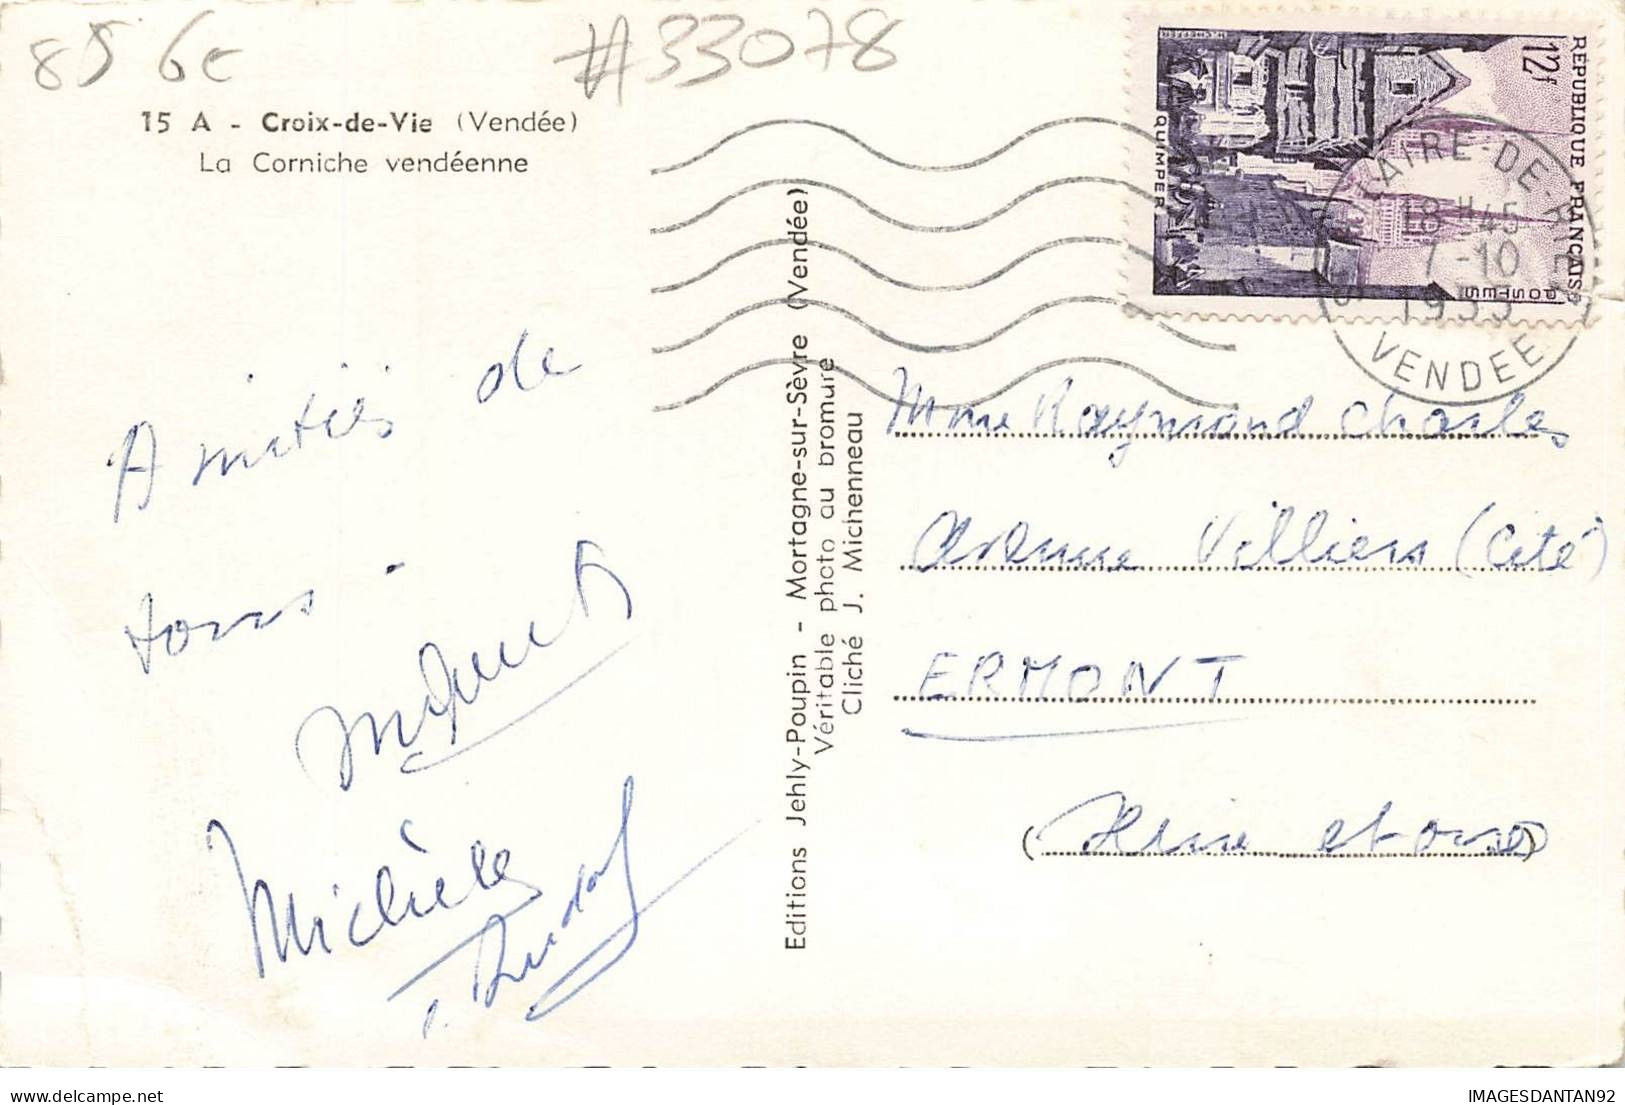 85 6e
#33078
15 A - Croix-de-Vie (Vendée)
La Corniche vendéenne
Amitiés de
tous.
Michèle
Editions Jehly-Poupin - Mortagne-sur-Sèvre (Vendée)
Véritable photo au bromure
Cliché J. Michenneau
REPUBLIQUE FRANCAISE
12f
POSTES
QUIMPER
CLAIRE-DE-RIEZ
18H45
7-10
1955
VENDEE
Mme Raymond Charles
Avenue Villiers (Cité)
ERMONT
(Seine et Oise)
IMAGESDANTAN92